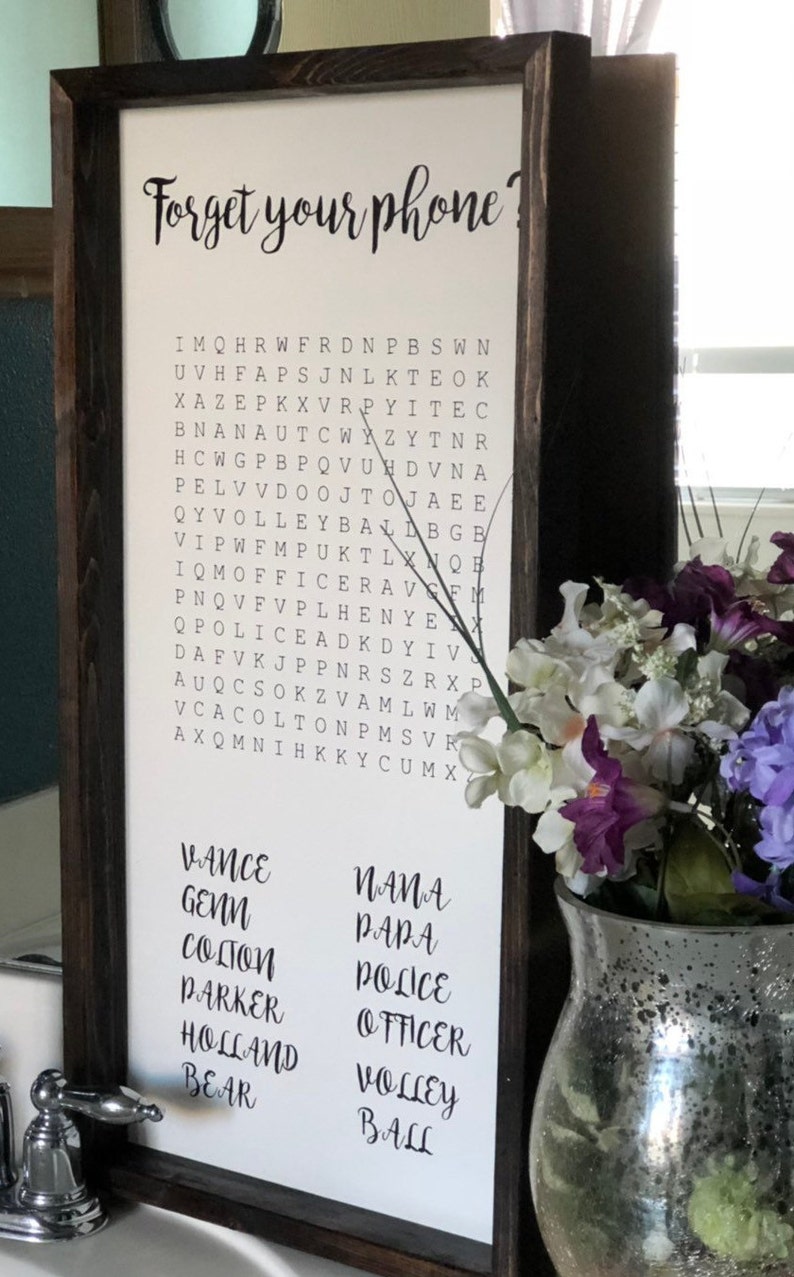 Forget your phone?
I M Q H R W F R D N P B S W N
U V H F A P S J N L K T E O K
X A Z E P K X V R P Y I T E C
B N A N A U T C W Y Z Y T N R
H C W G P B P Q V U H D V N A
P E L V V D O O J T O J A E E
Q Y V O L L E Y B A L L B G B
V I P W F M P U K T L X N Q B
I Q M O F F I C E R A V G F M
P N Q V F V P L H E N Y E X
Q P O L I C E A D K D Y I V J
D A F V K J P P N R S Z R X P
A U Q C S O K Z V A M L W M
V C A C O L T O N P M S V R
A X Q M N I H K K Y C U M X
VANCE
GENN
COLTON
PARKER
HOLLAND
BEAR
NANA
PAPA
POLICE
OFFICER
VOLLEY
BALL